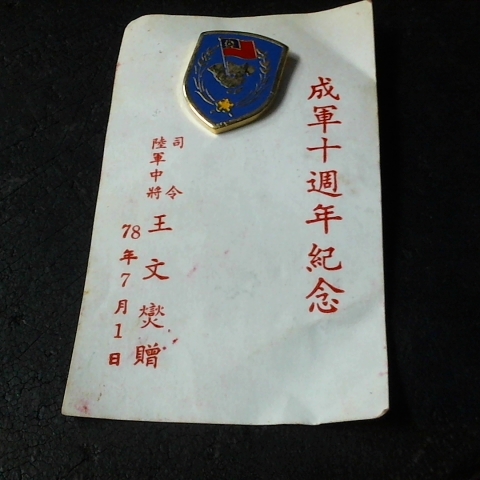 成軍十週年紀念
司令
陸軍中將
王文爕贈
78年7月1日